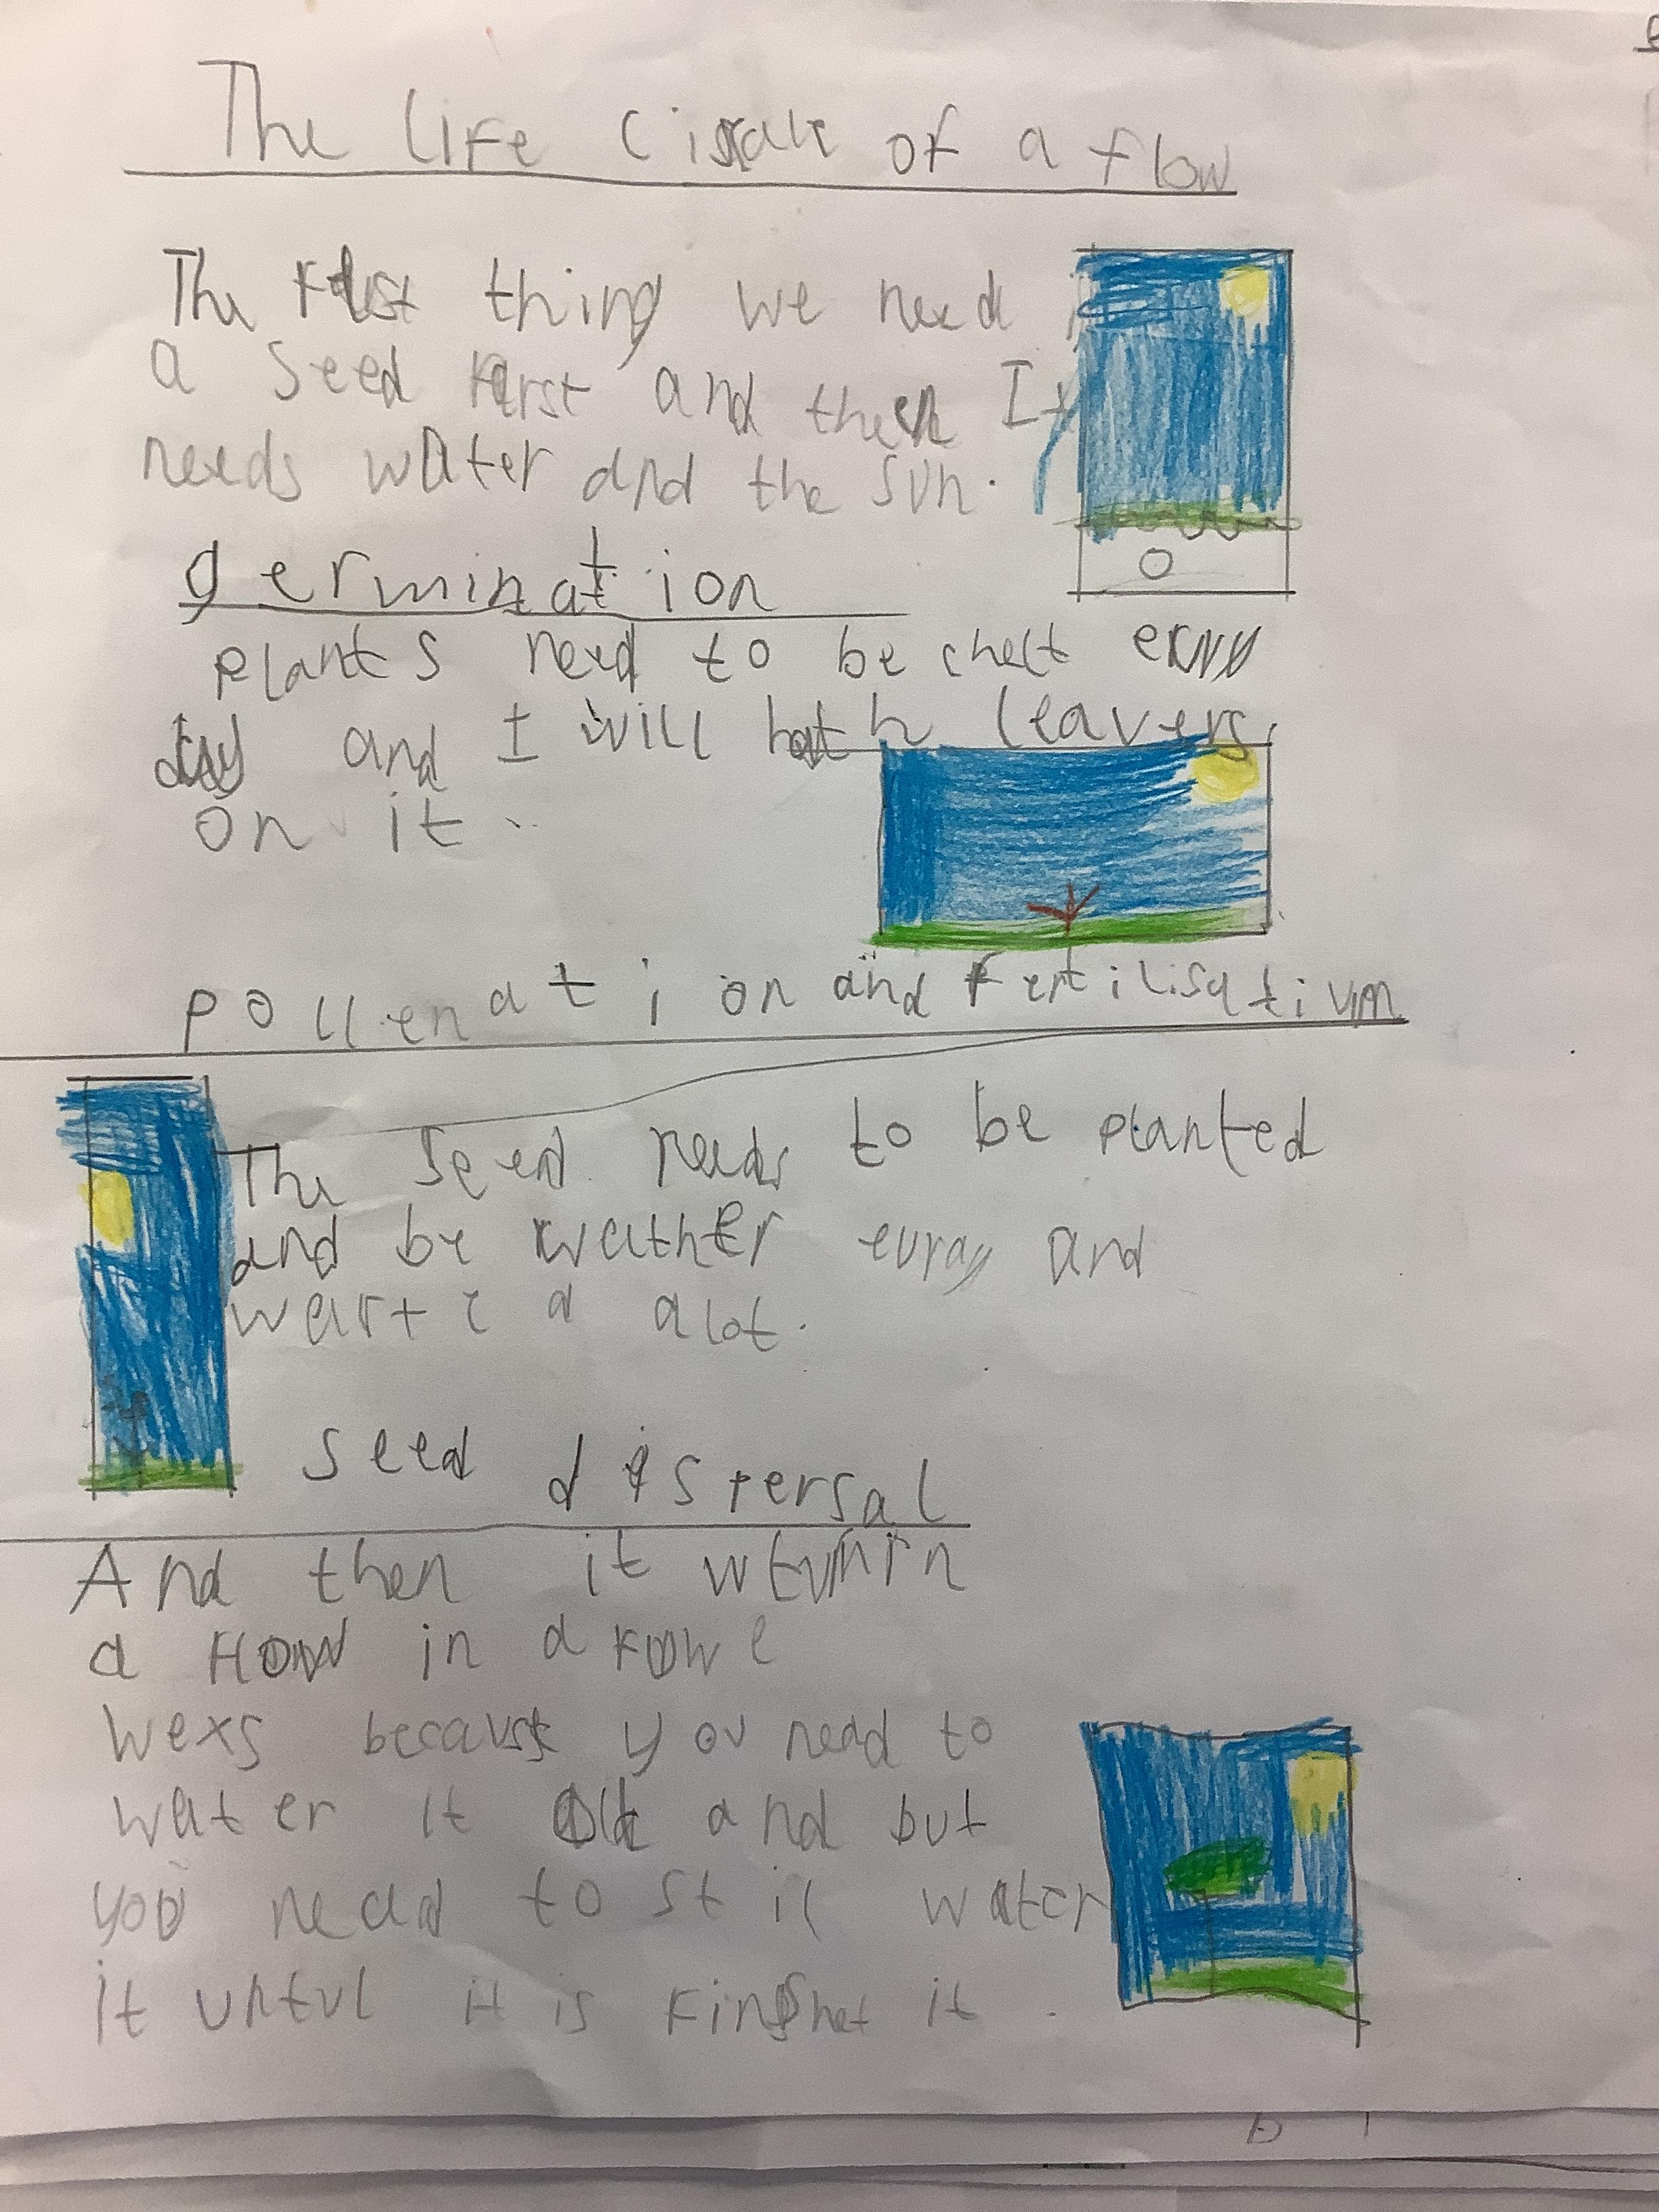 The life cisale of a flow
The ferst thing we need
a seed farst and then It
needs water and the sun.
germination
plants need to be chelt
day and I will hath leavers.
on it.
pollenation and fertilisation
The seed needs to be planted
and be weather and
a alot.
seed dispersal
And then it
a flow in a
wexs because you need to
water it and but
you neaad to stil water
it untul it is finshet it.